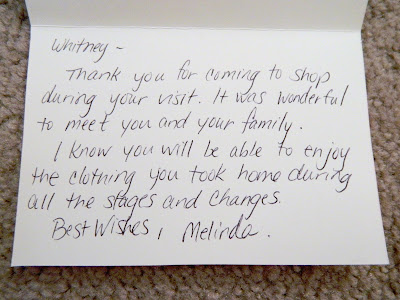 Whitney ~
Thank you for coming to shop
during your visit. It was wonderful
to meet you and your family.
I know you will be able to enjoy
the clothing you took home during
all the stages and changes.
Best Wishes, Melinda.